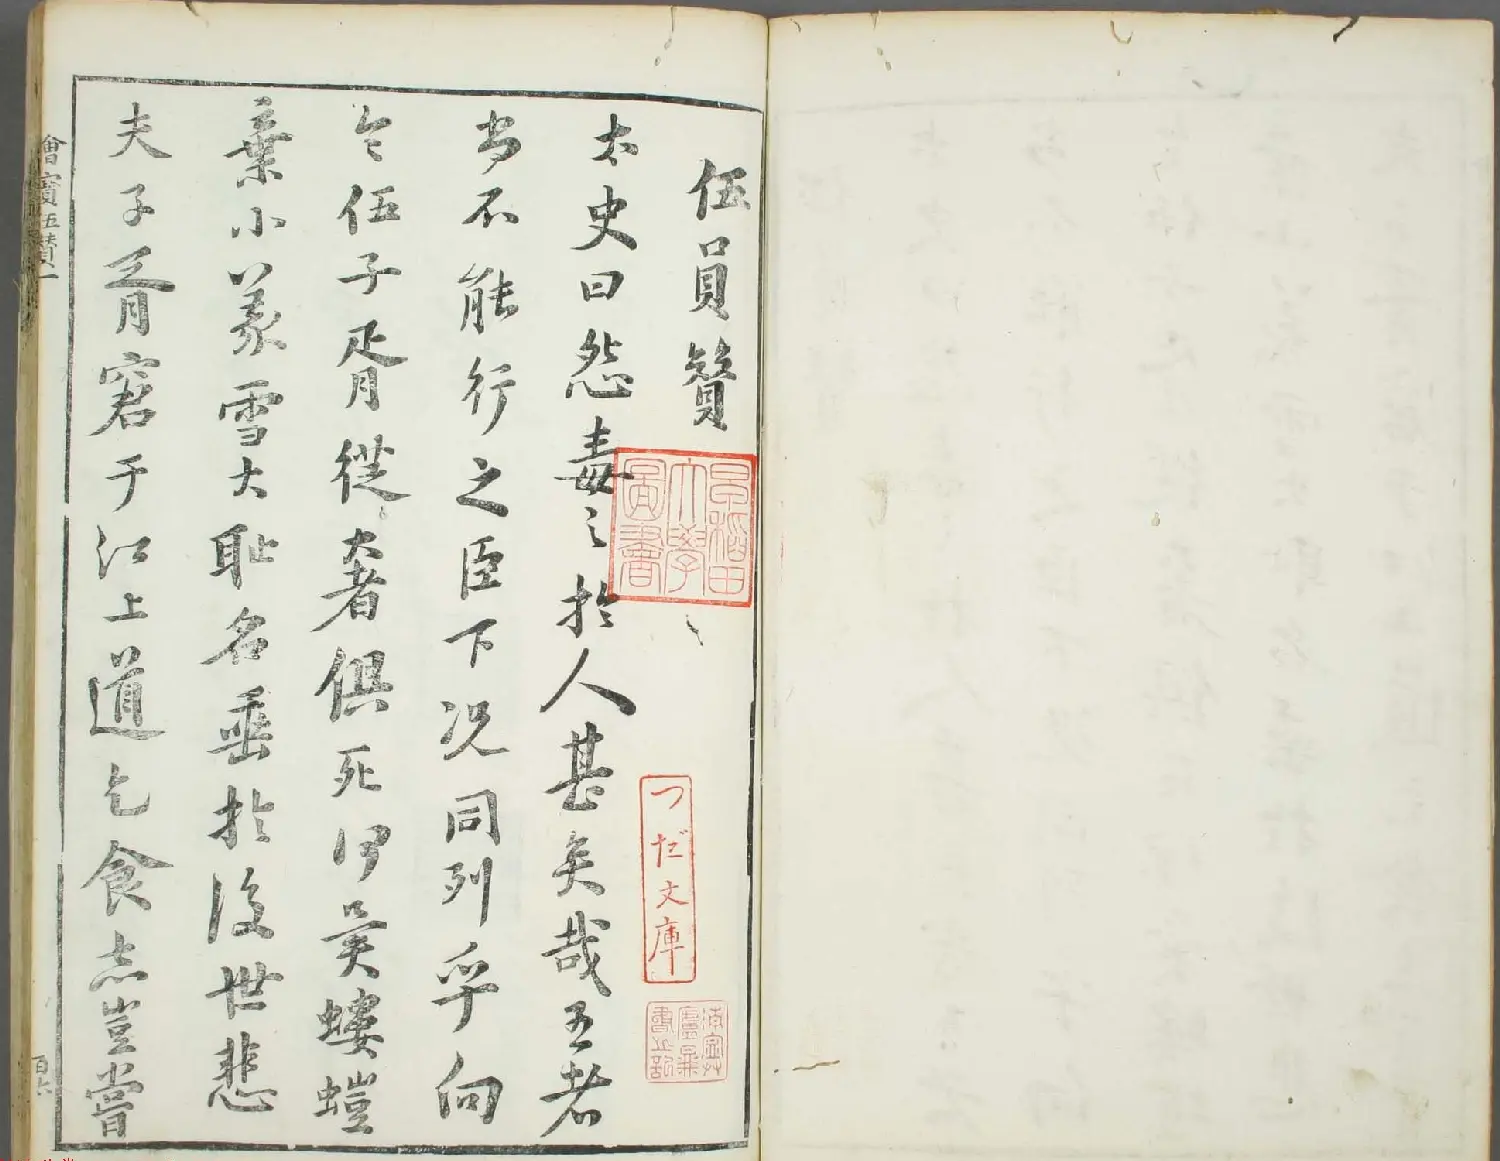 伍員贊
太史曰怨毒之於人甚矣哉王者
尚不能行之臣下況同列乎向
令伍子胥從奢俱死何異螻螘
棄小義雪大恥名垂於後世悲
夫子胥窘于江上道乞食志豈嘗
早稻田
大學
圖書
つだ文庫
伍贊一
百六